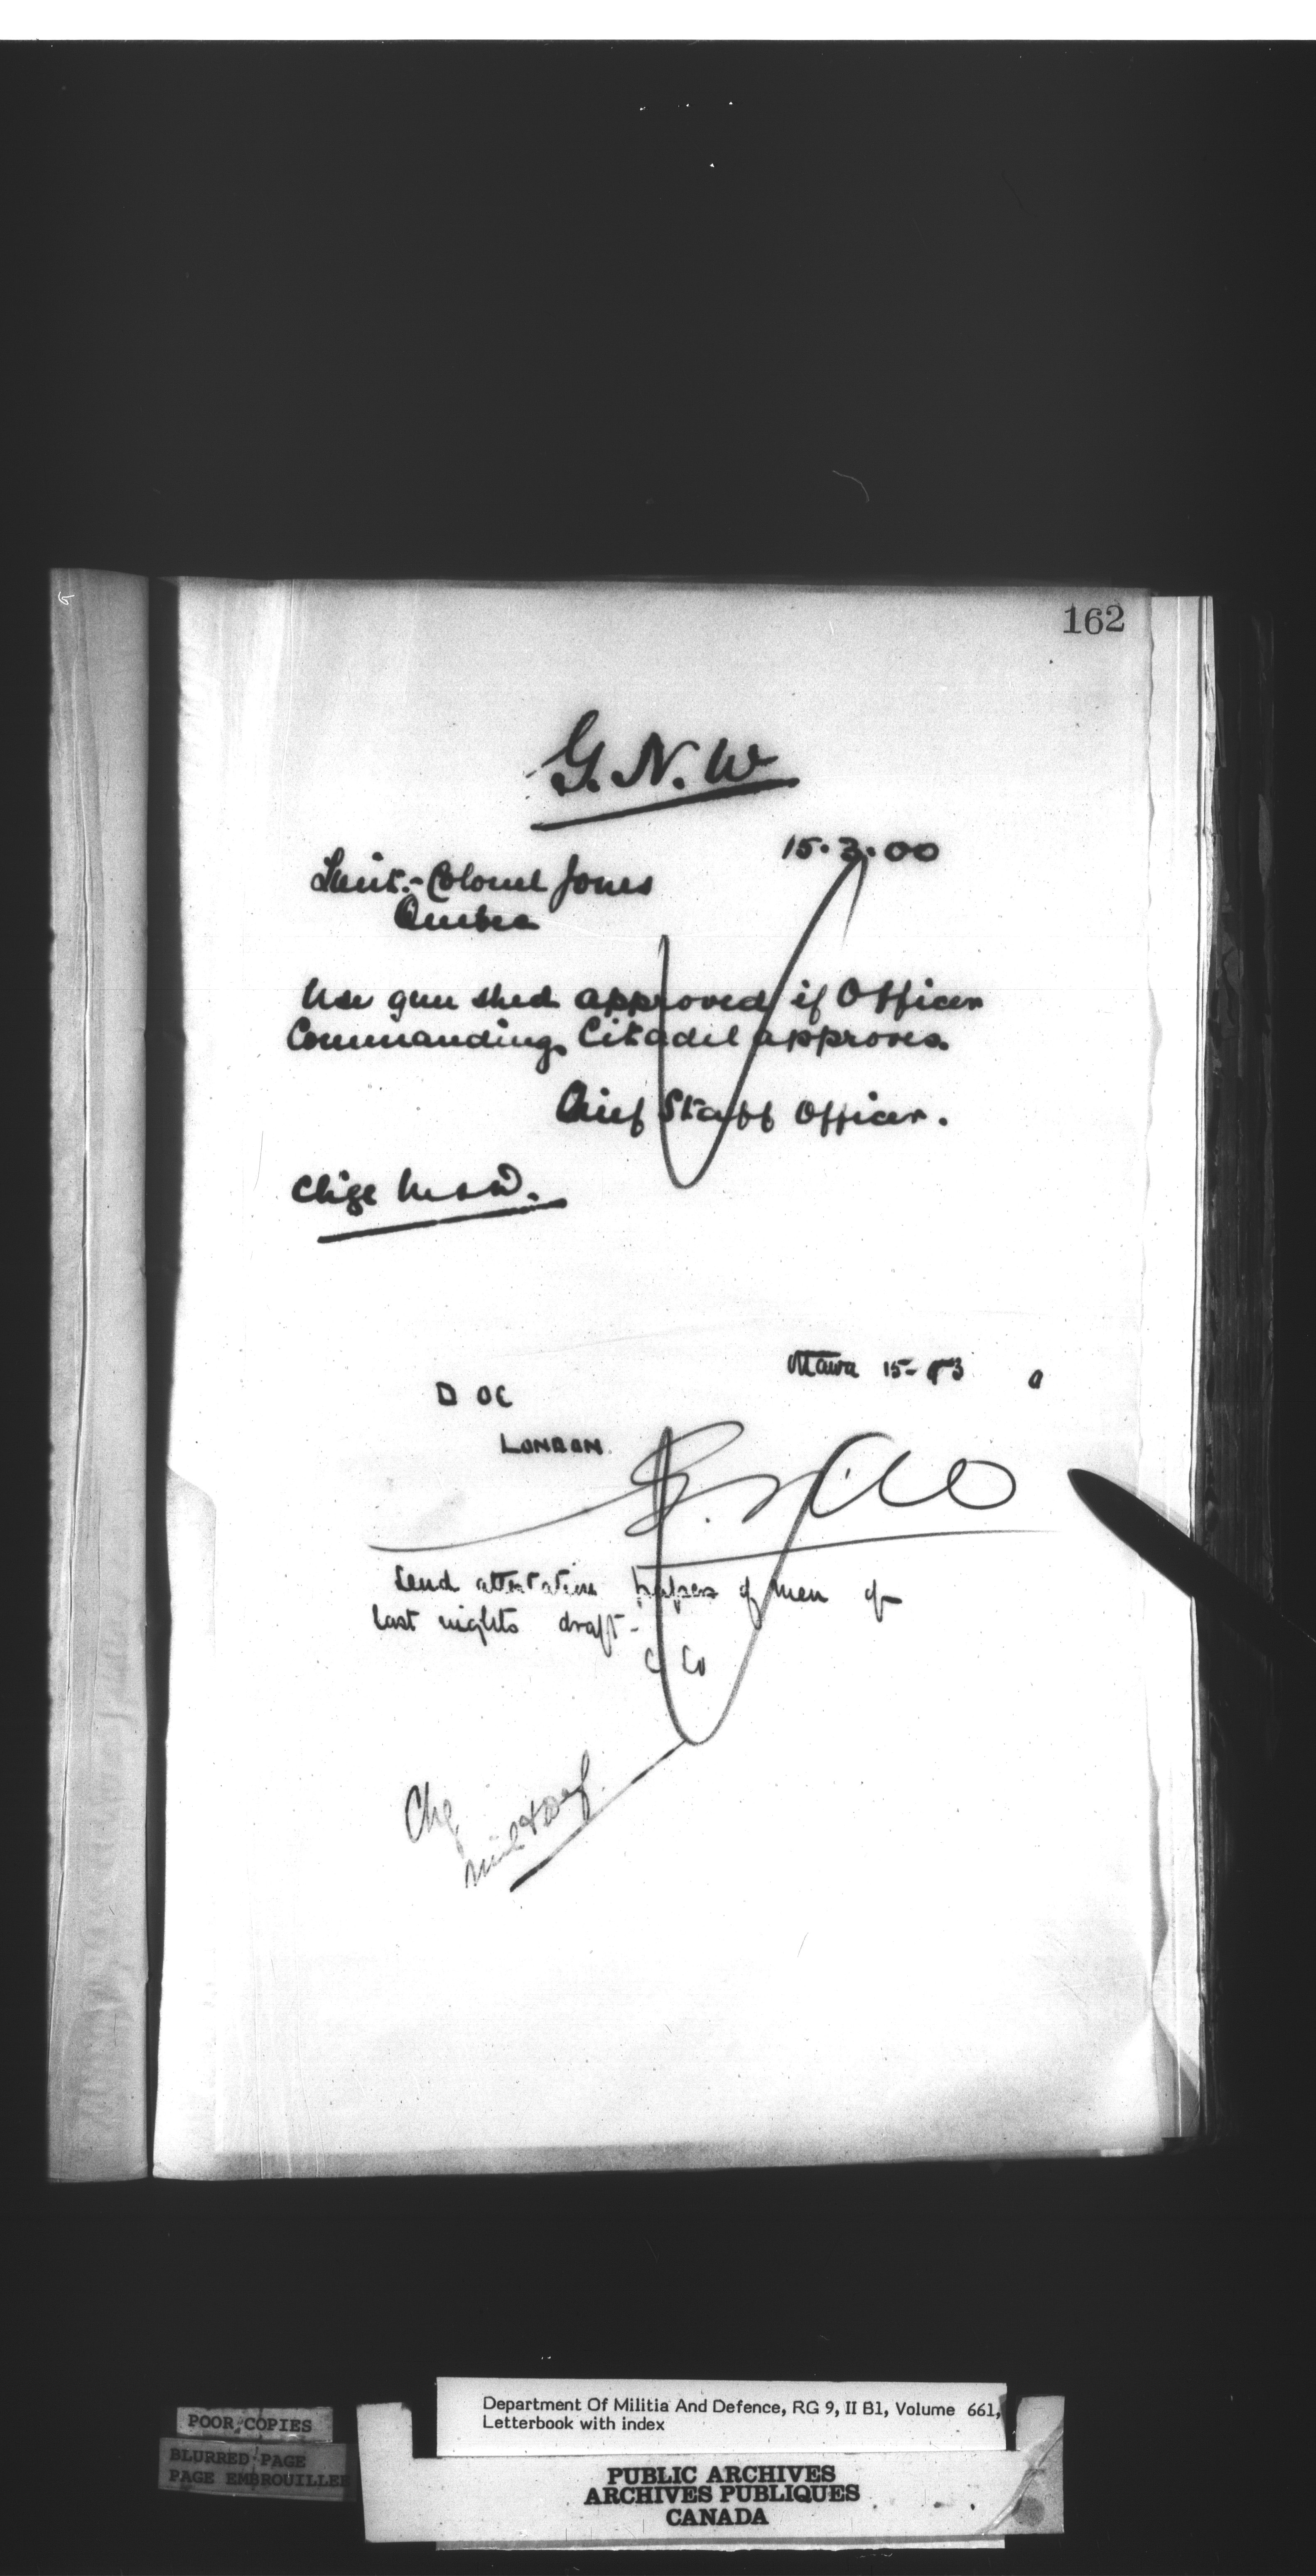 162
G. N. W
15.3.00
Lieut.-Colonel Jones
Quebec
Use gun shed approved if Officer
Commanding Citadel approves.
Chief Staff Officer.
Chge M & D.
Ottawa 15-3 0
D OC
LONDON.
Send attestation papers of men of
last nights draft-
Chg
Mil & Def.
Department Of Militia And Defence, RG 9, II B1, Volume 661,
Letterbook with index
POOR COPIES
BLURRED PAGE
PAGE EMBROUILLEE
PUBLIC ARCHIVES
ARCHIVES PUBLIQUES
CANADA